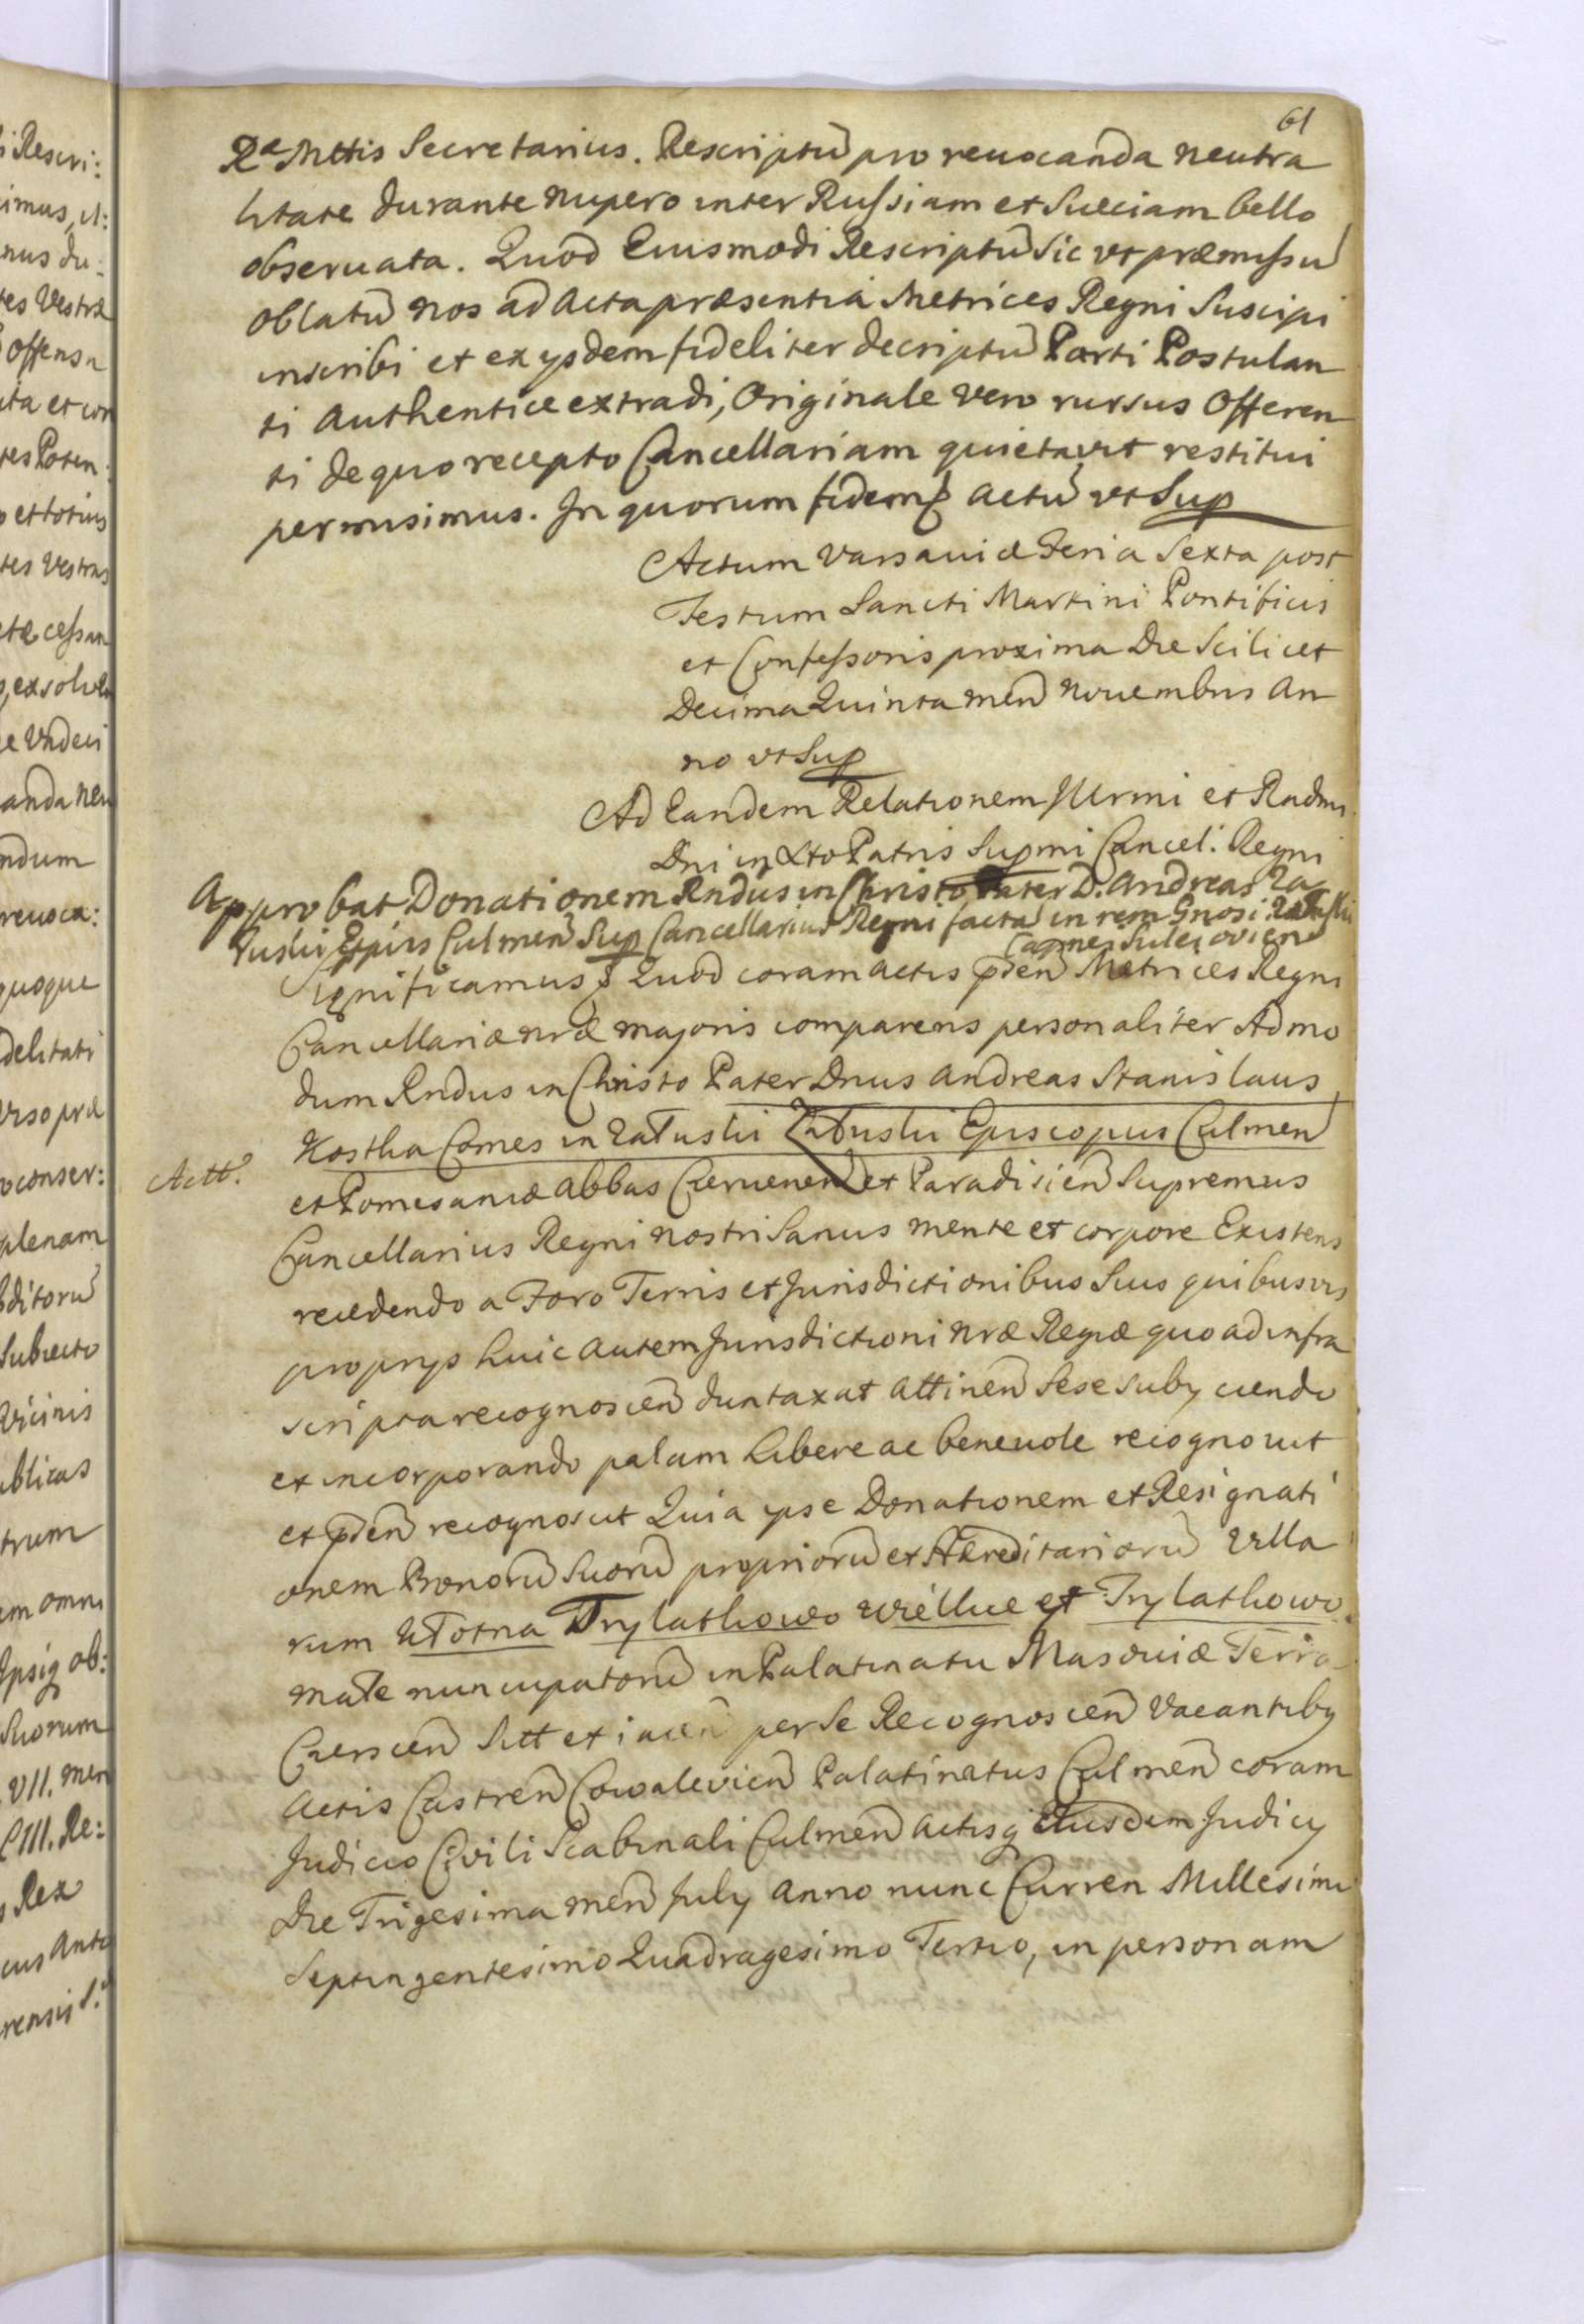 61
Rae Mttis Secretarius. Rescriptū pro reuocanda neutra
litate durante nupero inter Russiam et Sueciam bello
obseruata. Quod Eiusmodi Rescriptū sic vt præmissū
oblatū nos ad acta præsentia Metrices Regni Suscipi
inscribi et ex ysdem fideliter decriptū Parti Postulan
ti authentice extradi, Originale vero rursus Offeren
ti de quo recepto Cancellariam quietavit restitui
permisimus. In quorum fidem actū vt Sup
Actum Varsaviæ Feria Sexta post
Festum Sancti Martini Pontificis
et Confessoris proxima Die Scilicet
Decima Quinta men̄ Nouembris An
no vt Sup
Ad Eandem Relationem Illrmi et Rndmi
Dni in Xto Patris Supmi Cancel: Regni
Approbat Donationem Rndus in Christo Pater D. Andreas Za
łuski Eppus Culmen̄ Sup Cancellarius Regni factā in rem Gnosi Załuski
Capnei Suleiovien̄
Significamus Quod coram actis pden̄ Metrices Regni
Cancellariæ nræ majoris comparens personaliter Admo
dum Rndus in Christo Pater Dnus Andreas Stanislaus
Kostka Comes in Załuski Załuski Episcopus Culmen̄
Actt.
et Pomesaniæ Abbas Czeruenen̄ et Paradisien̄ Supremus
Cancellarius Regni nostri Sanus mente et corpore Existens
recedendo a Foro Terris et Jurisdictionibus Suis quibusvis
proprys huic autem Jurisdictioni nræ Regiæ quo ad infra
scripta recognoscen̄ duntaxat attinen̄ Sese subyciendo
et incorporando palam libere ac beneuole recognouit
et pden̄ recognoscit Quia ipse Donationem et Resignati
onem Bonorū Suorū propriorū et Hæreditariorū Villa
rum Utotna Trylatkowo wielkie et Trylatkowo
małe nuncupatorū in Palatinatu Masoviæ Terra
Czerscen̄ Sitt et iacen̄ per Se Recognoscen̄ Vacantiby
Actis Castren̄ Cowalevien̄ Palatinatus Culmen̄ coram
Judicio Civili Scabinali Culmen̄ actisq Eiusdem Judicy
Die Trigesima men̄ July Anno nunc Curren Millesimo
Septingentesimo Quadragesimo Tertio, in personam